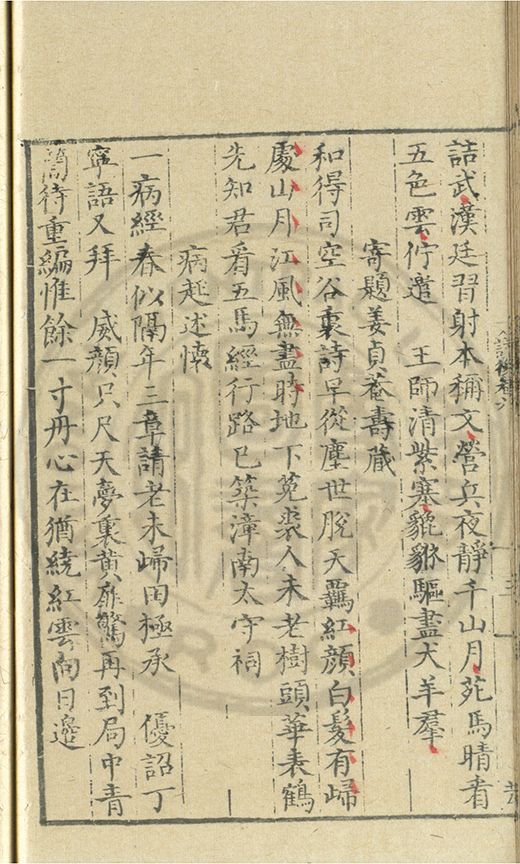 詰武漢廷習射本稱文營兵夜靜千山月苑馬晴看
五色雲佇遣　王師清紫塞貔貅驅盡犬羊羣
寄題姜貞菴壽藏
和得司空谷裏詩早從塵世脫天羈紅顏白髮有歸
處山月江風無盡時地下菟裘人未老樹頭華表鶴
先知君看五馬經行路已築漳南太守祠
病起述懷
一病經春似隔年三章請老未歸田極承　優詔丁
寧語又拜　威顏只尺天夢裏黃扉驚再到局中青
簡待重編惟餘一寸丹心在猶繞紅雲向日邊